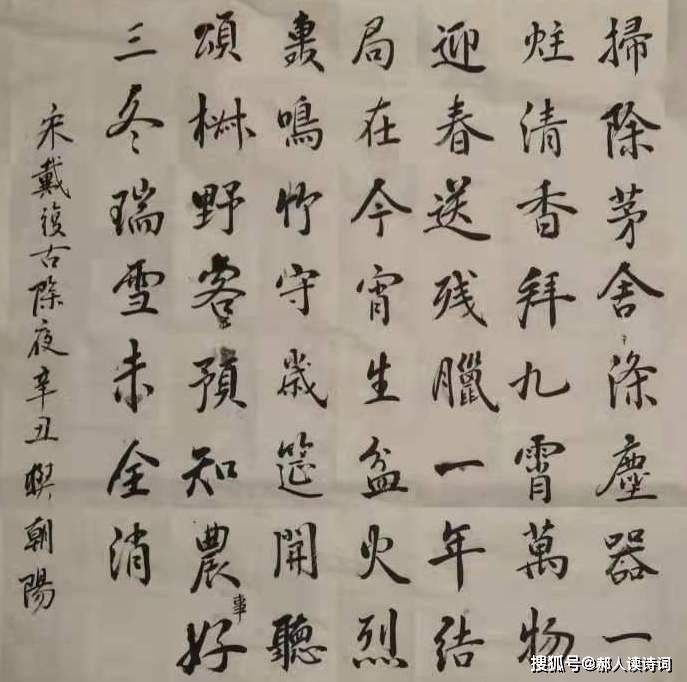 掃除茅舍滌塵器一
炷清香拜九霄萬物
迎春送残臘一年结
局在今宵生盆火烈
轟鳴竹守歲筵開聽
頌椒野客預知農事好
三冬瑞雪未全消
宋戴復古除夜辛丑朝陽
搜狐号@郝人读诗词